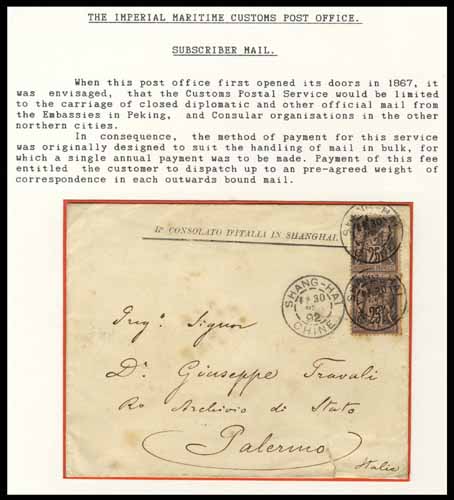 THE IMPERIAL MARITIME CUSTOMS POST OFFICE.
SUBSCRIBER MAIL.
When this post office first opened its doors in 1867, it
was envisaged, that the Customs Postal Service would be limited
to the carriage of closed diplomatic and other official mail from
the Embassies in Peking, and Consular organisations in the other
northern cities.
In consequence, the method of payment for this service
was originally designed to suit the handling of mail in bulk, for
which a single annual payment was to be made. Payment of this fee
entitled the customer to dispatch up to an pre-agreed weight of
correspondence in each outwards bound mail.
Rº CONSOLATO D'ITALIA IN SHANGHAI.
25
SHANG-HAI
30
92
CHINE
25
Preg.º Signor
Dr. Giuseppe Travali
Ro Archivio di Stato
Palermo
Italie